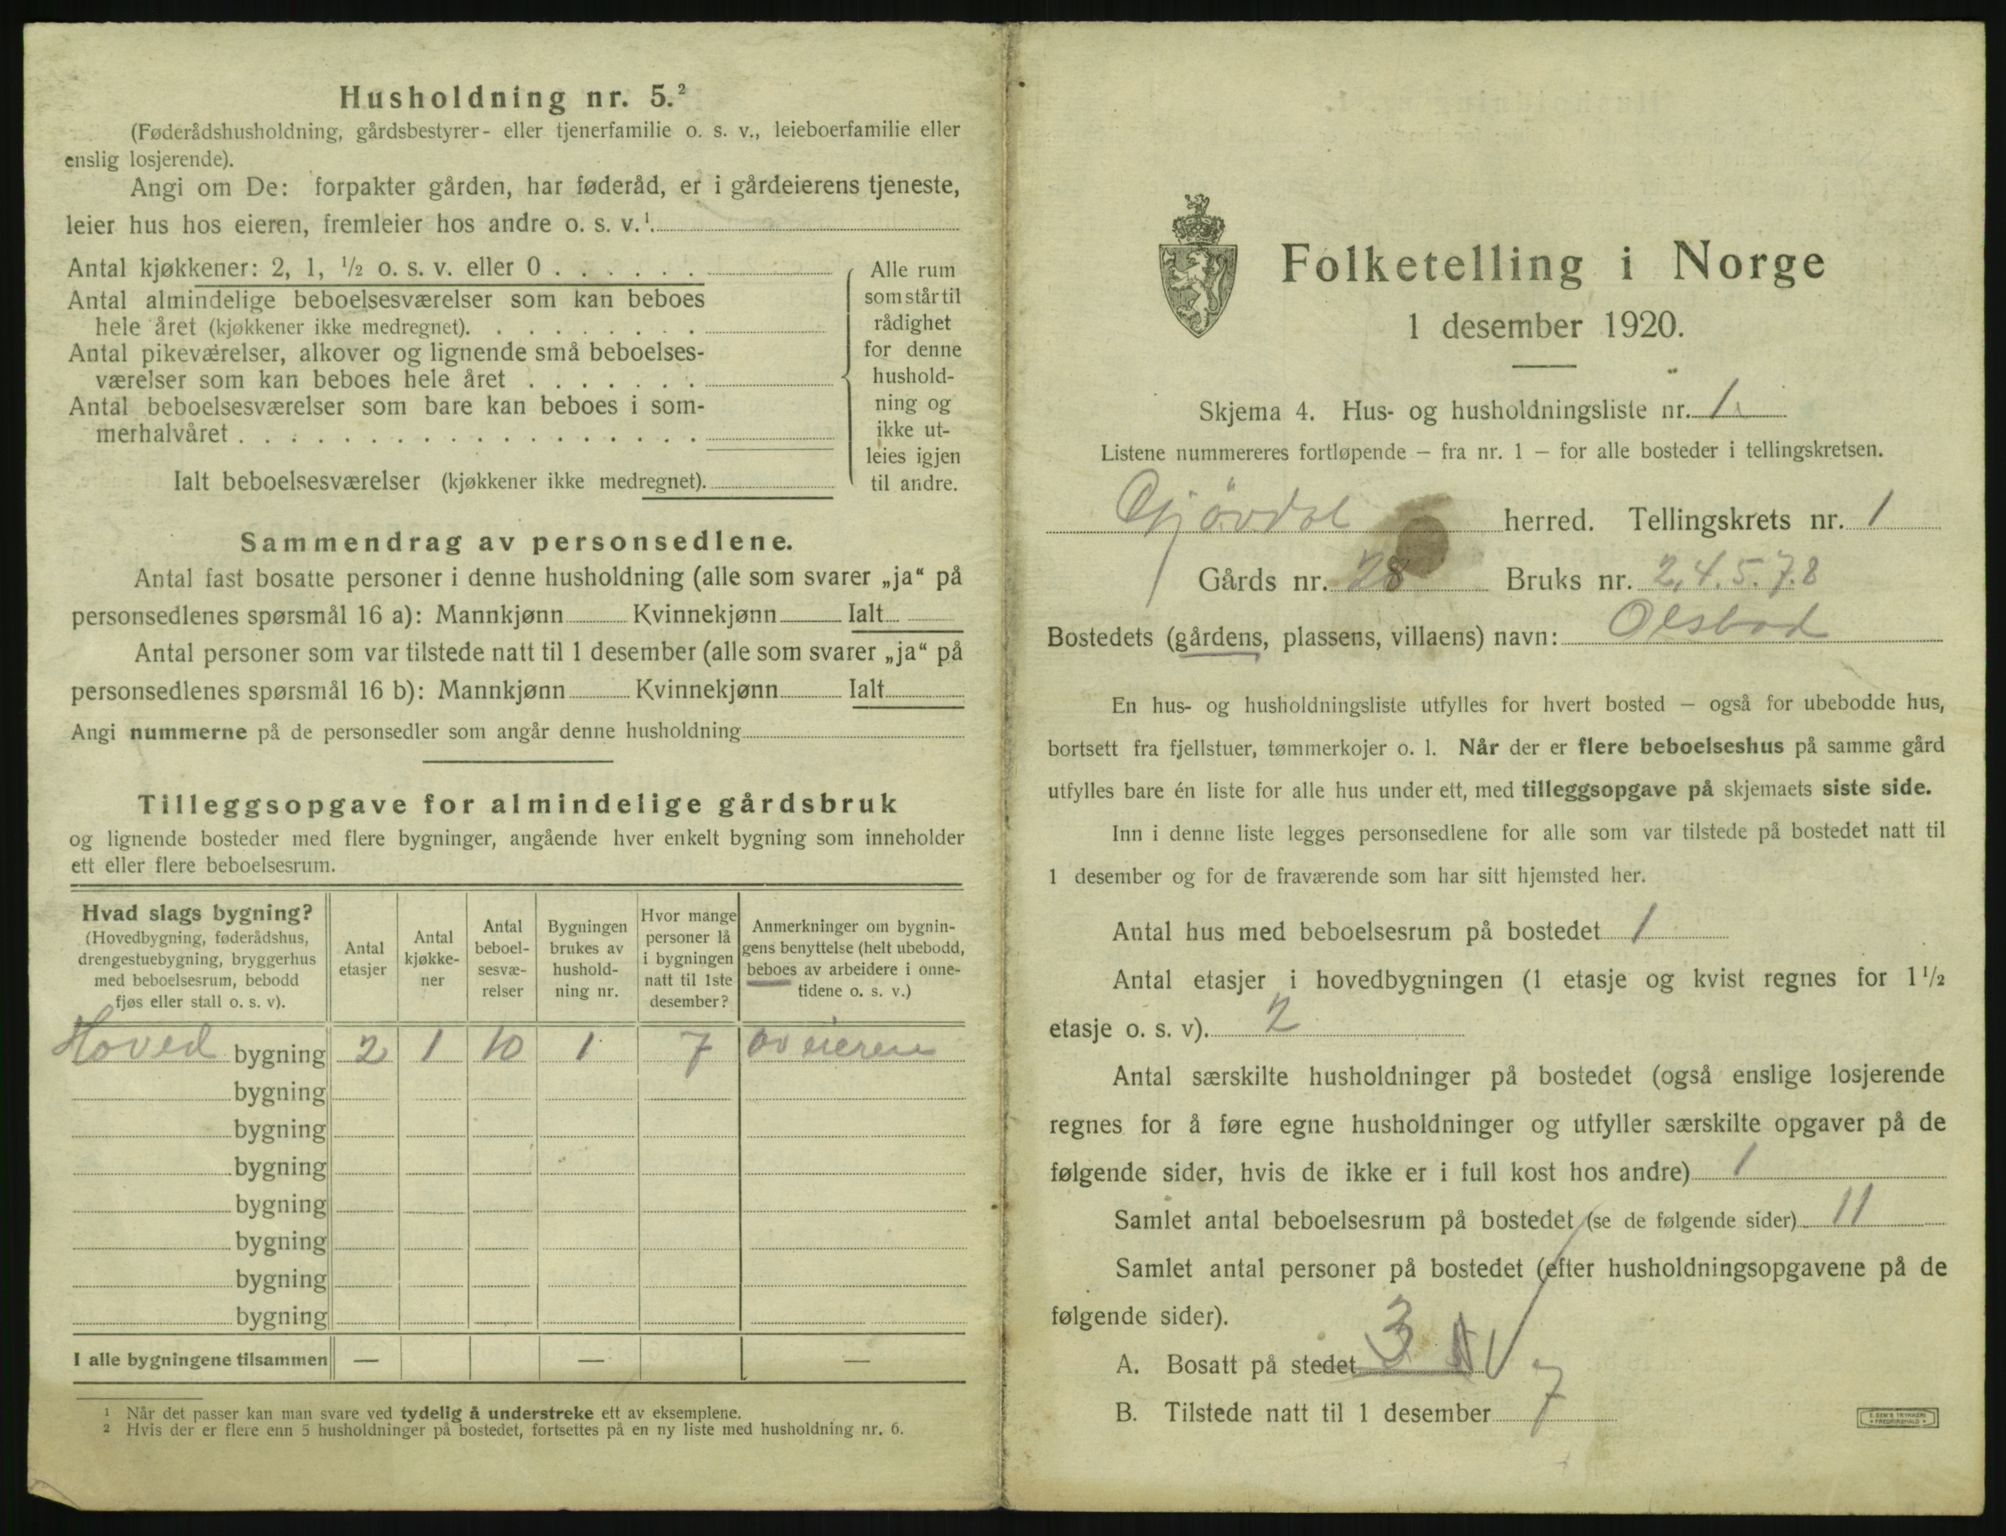 Husholdning nr. 5.²
(Føderådshusholdning, gårdsbestyrer- eller tjenerfamilie o. s. v., leieboerfamilie eller
enslig losjerende).
Angi om De: forpakter gården, har føderåd, er i gårdeierens tjeneste,
leier hus hos eieren, fremleier hos andre o. s. v.¹
Antal kjøkkener: 2, 1, ½ o. s. v. eller 0
Antal almindelige beboelsesværelser som kan beboes
hele året (kjøkkener ikke medregnet).
Antal pikeværelser, alkover og lignende små beboelses-
værelser som kan beboes hele året
Antal beboelsesværelser som bare kan beboes i som-
merhalvåret
Ialt beboelsesværelser (kjøkkener ikke medregnet).
Alle rum
som står til
rådighet
for denne
hushold-
ning og
ikke ut-
leies igjen
til andre.
Sammendrag av personsedlene.
Antal fast bosatte personer i denne husholdning (alle som svarer „ja“ på
personsedlenes spørsmål 16 a): Mannkjønn Kvinnekjønn Ialt
Antal personer som var tilstede natt til 1 desember (alle som svarer „ja“ på
personsedlenes spørsmål 16 b): Mannkjønn Kvinnekjønn Ialt
Angi nummerne på de personsedler som angår denne husholdning
Tilleggsopgave for almindelige gårdsbruk
og lignende bosteder med flere bygninger, angående hver enkelt bygning som inneholder
ett eller flere beboelsesrum.
Hvad slags bygning?
(Hovedbygning, føderådshus,
drengestuebygning, bryggerhus
med beboelsesrum, bebodd
fjøs eller stall o. s. v).
Antal
etasjer
Antal
kjøkke-
ner
Antal
beboel-
sesvæ-
relser
Bygningen
brukes av
hushold-
ning nr.
Hvor mange
personer lå
i bygningen
natt til 1ste
desember?
Anmerkninger om bygnin-
gens benyttelse (helt ubebodd,
beboes av arbeidere i onne-
tidene o. s. v.)
Hoved bygning 2 1 10 1 7 av eieren
bygning
bygning
bygning
bygning
bygning
bygning
bygning
I alle bygningene tilsammen — — —
¹ Når det passer kan man svare ved tydelig å understreke ett av eksemplene.
² Hvis der er flere enn 5 husholdninger på bostedet, fortsettes på en ny liste med husholdning nr. 6.
Folketelling i Norge
1 desember 1920.
Skjema 4. Hus- og husholdningsliste nr. 1
Listene nummereres fortløpende — fra nr. 1 — for alle bosteder i tellingskretsen.
Gjøvdal herred. Tellingskrets nr. 1
Gårds nr. 28 Bruks nr. 2,4.5.7.8
Bostedets (gårdens, plassens, villaens) navn: Olsbod
En hus- og husholdningsliste utfylles for hvert bosted — også for ubebodde hus,
bortsett fra fjellstuer, tømmerkojer o. l. Når der er flere beboelseshus på samme gård
utfylles bare én liste for alle hus under ett, med tilleggsopgave på skjemaets siste side.
Inn i denne liste legges personsedlene for alle som var tilstede på bostedet natt til
1 desember og for de fraværende som har sitt hjemsted her.
Antal hus med beboelsesrum på bostedet 1
Antal etasjer i hovedbygningen (1 etasje og kvist regnes for 1½
etasje o. s. v). 2
Antal særskilte husholdninger på bostedet (også enslige losjerende
regnes for å føre egne husholdninger og utfyller særskilte opgaver på de
følgende sider, hvis de ikke er i full kost hos andre) 1
Samlet antal beboelsesrum på bostedet (se de følgende sider) 11
Samlet antal personer på bostedet (efter husholdningsopgavene på de
følgende sider).
A. Bosatt på stedet 3
B. Tilstede natt til 1 desember 7